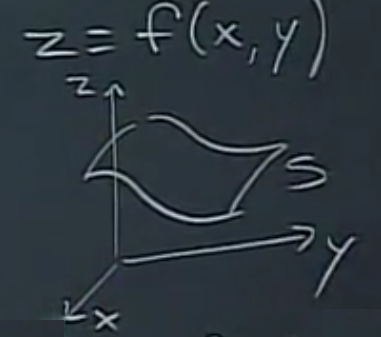 z = f(x,y)
z
S
y
x